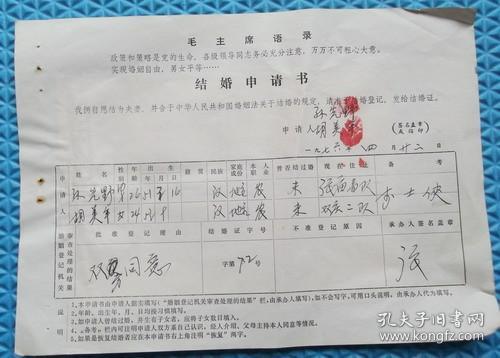 毛主席语录
政策和策略是党的生命,各级领导同志务必充分注意,万万不可粗心大意。
实现婚姻自由,男女平等……
结婚申请书
我俩自愿结为夫妻,并合于中华人民共和国婚姻法关于结婚的规定,请准予结婚登记,发给结婚证。
孙先野
申请人 胡美军 (签名盖章或按印)
一九七六年四月廿二日
申请人 姓名 性别 年龄 出生年月日 民族 家庭成份 本人职业 曾否结过婚 现在住址 备考
孙先野 男 26 51 16 汉 地 农 未 张 队
胡美军 女 24 汉 地 农 未 双 二队
婚姻登记机关审查处理的结果 批准登记理由 结婚证字号 不准登记原因 承办人签名盖章
双 同意 字第72号
说明
1.本申请书由申请人据实填写(“婚姻登记机关审查处理的结果”栏,由承办人填写),如不会写字,可用口头说明,由承办人代为填写。
2.年龄、出生年、月、日均按习惯填写。
3.如申请人曾结过婚,并生有子女者,应将子女数目填入。
4.备考:栏内可注明申请人双方系自己认识,经人介绍、父母主持本人同意等情况。
5.如果是恢复结婚者应在本申请书右上角注明“恢复”两字。
孔夫子旧书网